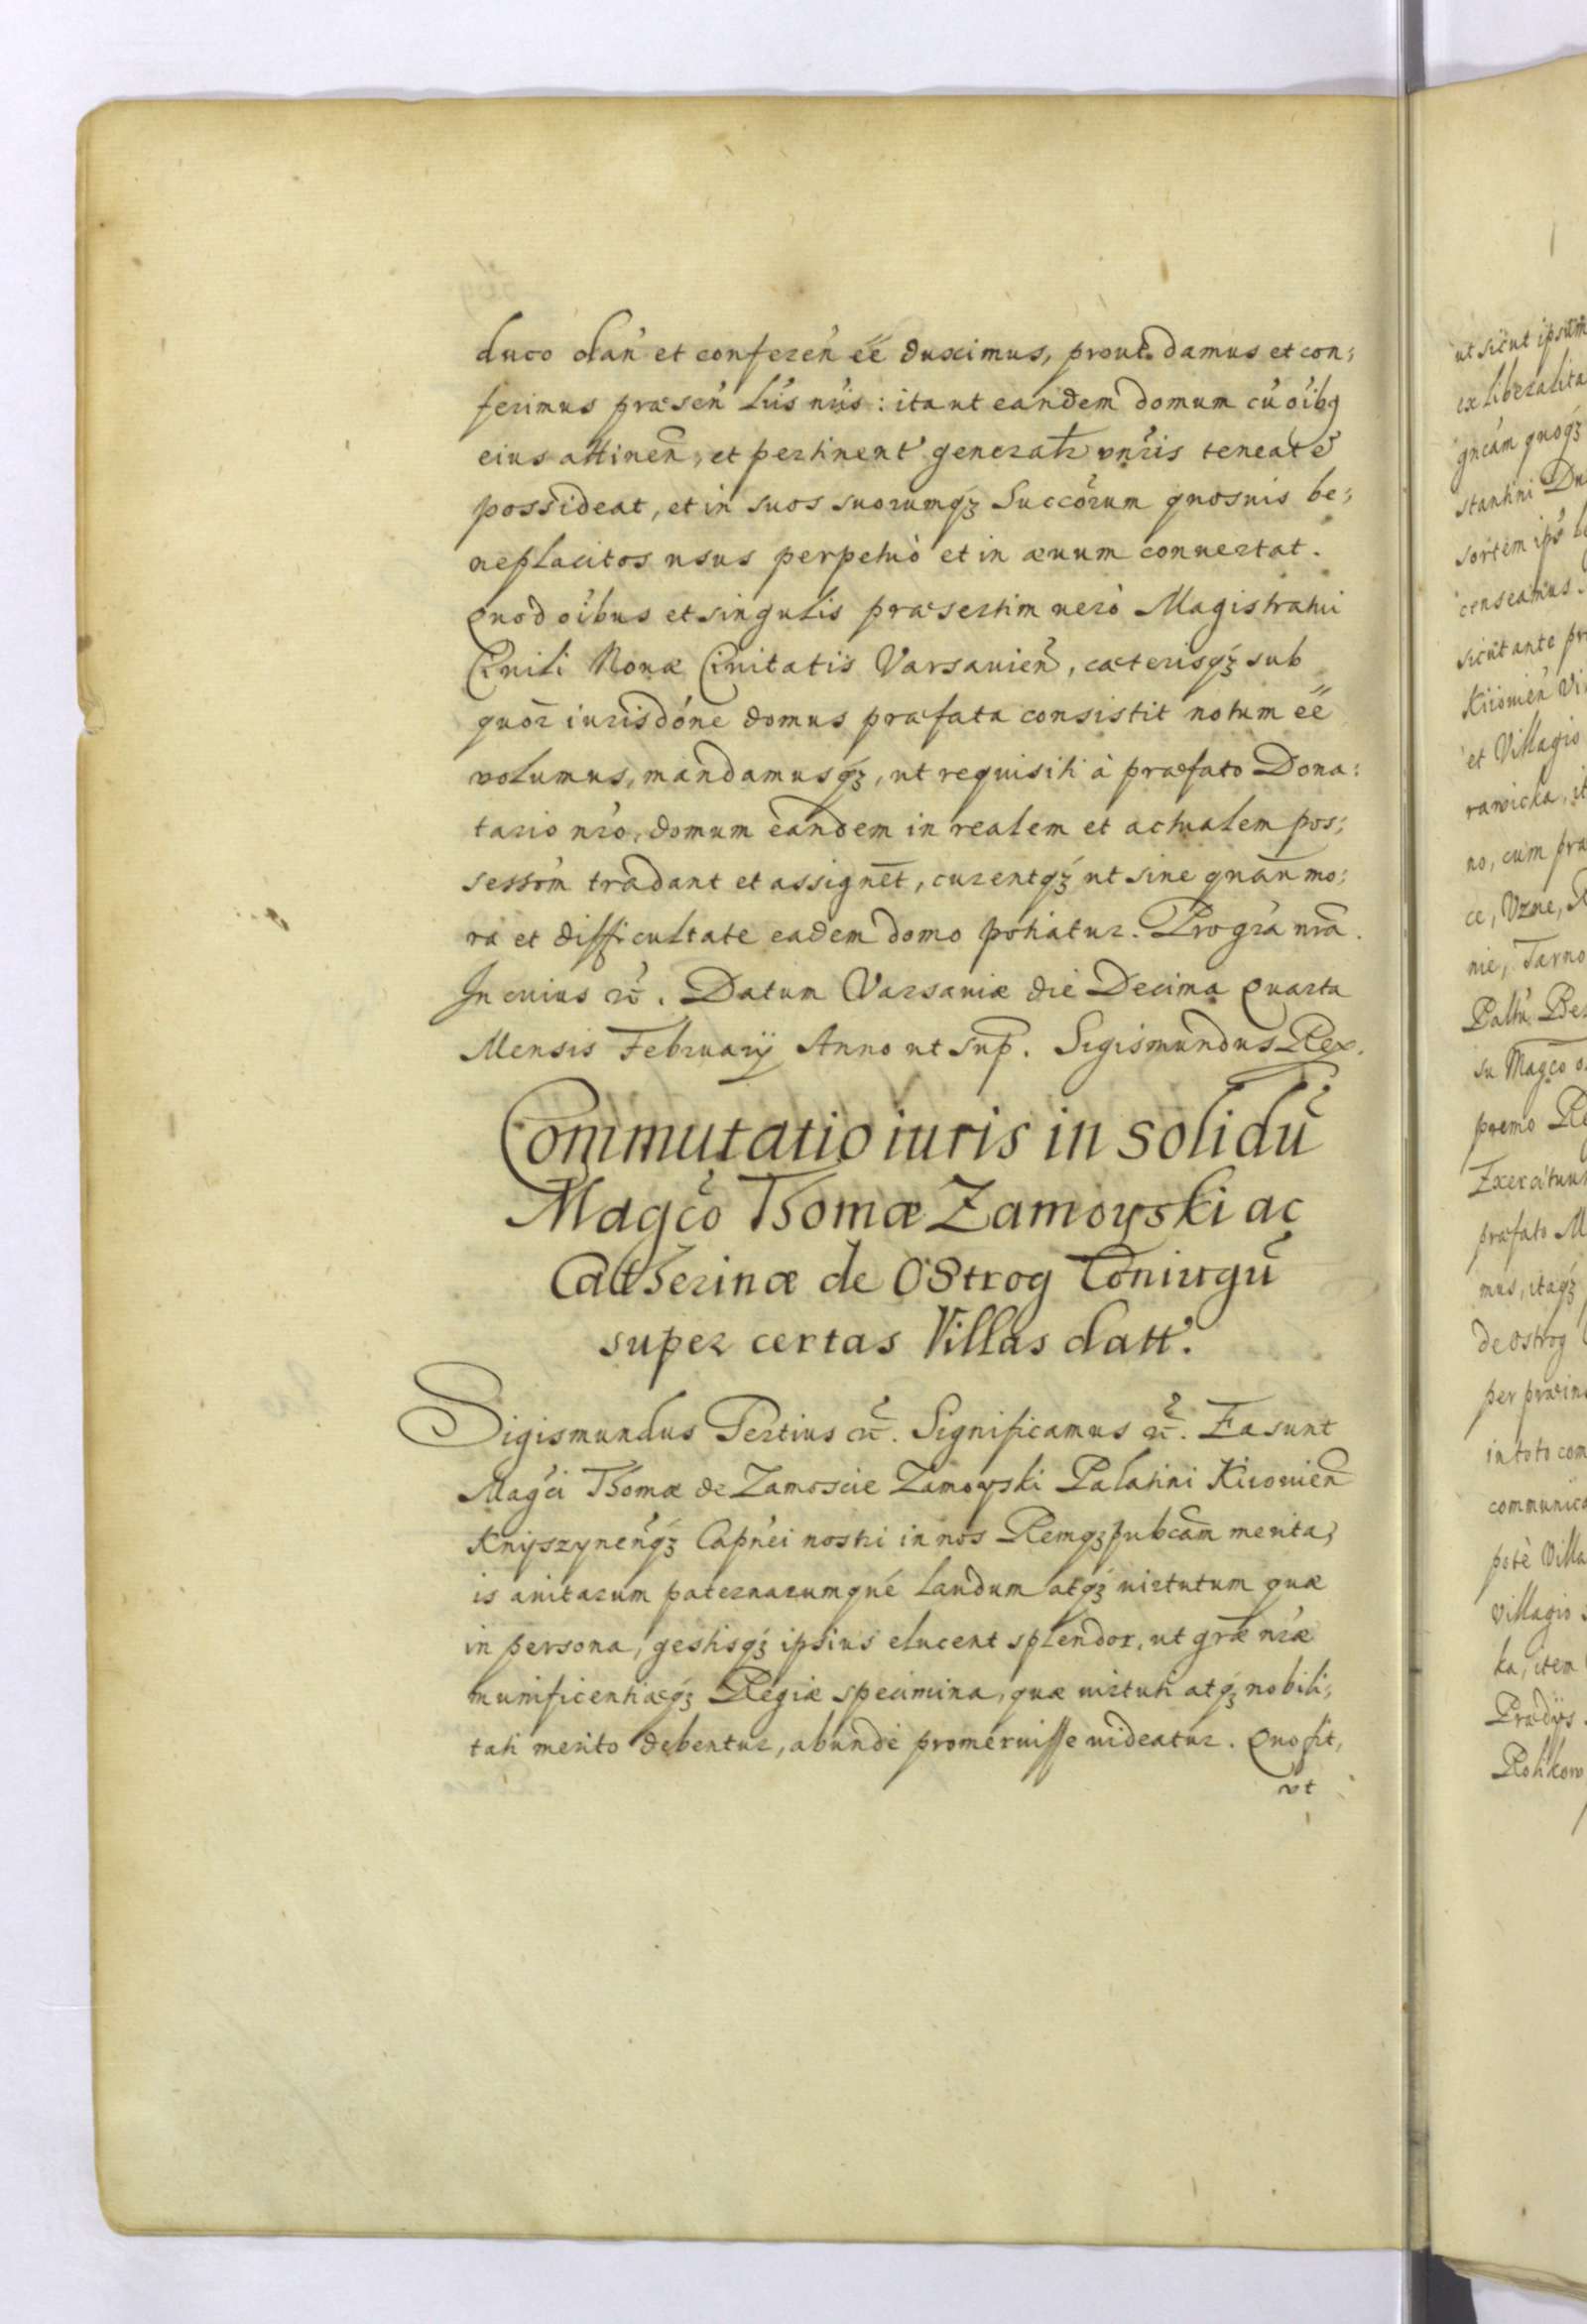 duco dan̄ et conferen̄ eē duximus, prout damus et con;
ferimus præsen̄ lr̄is nr̄is: ita ut eandem domum cū oībq
eius attinen̄, et pertinent generalr̄ vnr̄is teneat
possideat, et in suos suorumq́ꝫ Succōrum quosuis be;
neplacitos usus perpetuò et in æuum conuertat.
Quod oībus et singulis præsertim uerò Magistratui
Ciuili Nouæ Ciuitatis Varsauien̄, cæterisq́ꝫ sub
quor̄ iurisdōne domus præfata consistit notum eē
volumus, mandamusq́ꝫ, ut requisiti à præfato Dona:
tario nr̄o, domum eandem in realem et actualem pos;
sessōm tradant et assignēt, curentq́ꝫ ut sine quāuis mo:
ra et difficultate eadem domo potiatur. Pro gr̄a nr̄a.
In cuius rc̄. Datum Varsauiæ die Decima Quarta
Mensis Februarij Anno ut sup̄. Sigismundus Rex.
Commutatio iuris in solidū
Magc̄o Thomæ Zamoyski ac
Catherinæ de Ostrog Coniugū
super certas Villas datt.
Sigismundus Tertius rc̄. Significamus rc̄. Ea sunt
Magc̄i Thomæ de Zamoscie Zamoyski Palatini Kiiouien̄
Knyszynen̄q́ꝫ Capn̄ei nostri in nos Remqꝫpubcām merita,
is auitarum paternarumqué laudum atq́ꝫ uirtutum quæ
in persona, gestisq́ꝫ ipsius elucent splendor, ut gr̄æ nr̄æ
munificentiæq́ꝫ Regiæ specimina, quæ uirtuti atq́ꝫ nobili;
tati merito debentur, abundè promeruisse uideatur. Quo fit,
vt
ut sicut ipsum
ex liberalita
quoq́ꝫ
stantini Du
sortem ips
censeamus
sicut ante pr
Kiiouien̄ Vi
et Villagio
rawicka, it
no, cum pra
ce, Vzne, R
nie, Tarno
su Magc̄o
premo Re
Exercituu
præfato M
mus, itaq́ꝫ
de Ostrog
per præin
in toto com
communic
potè Villa
Villagio
ka, item
Prædys
Rohkow